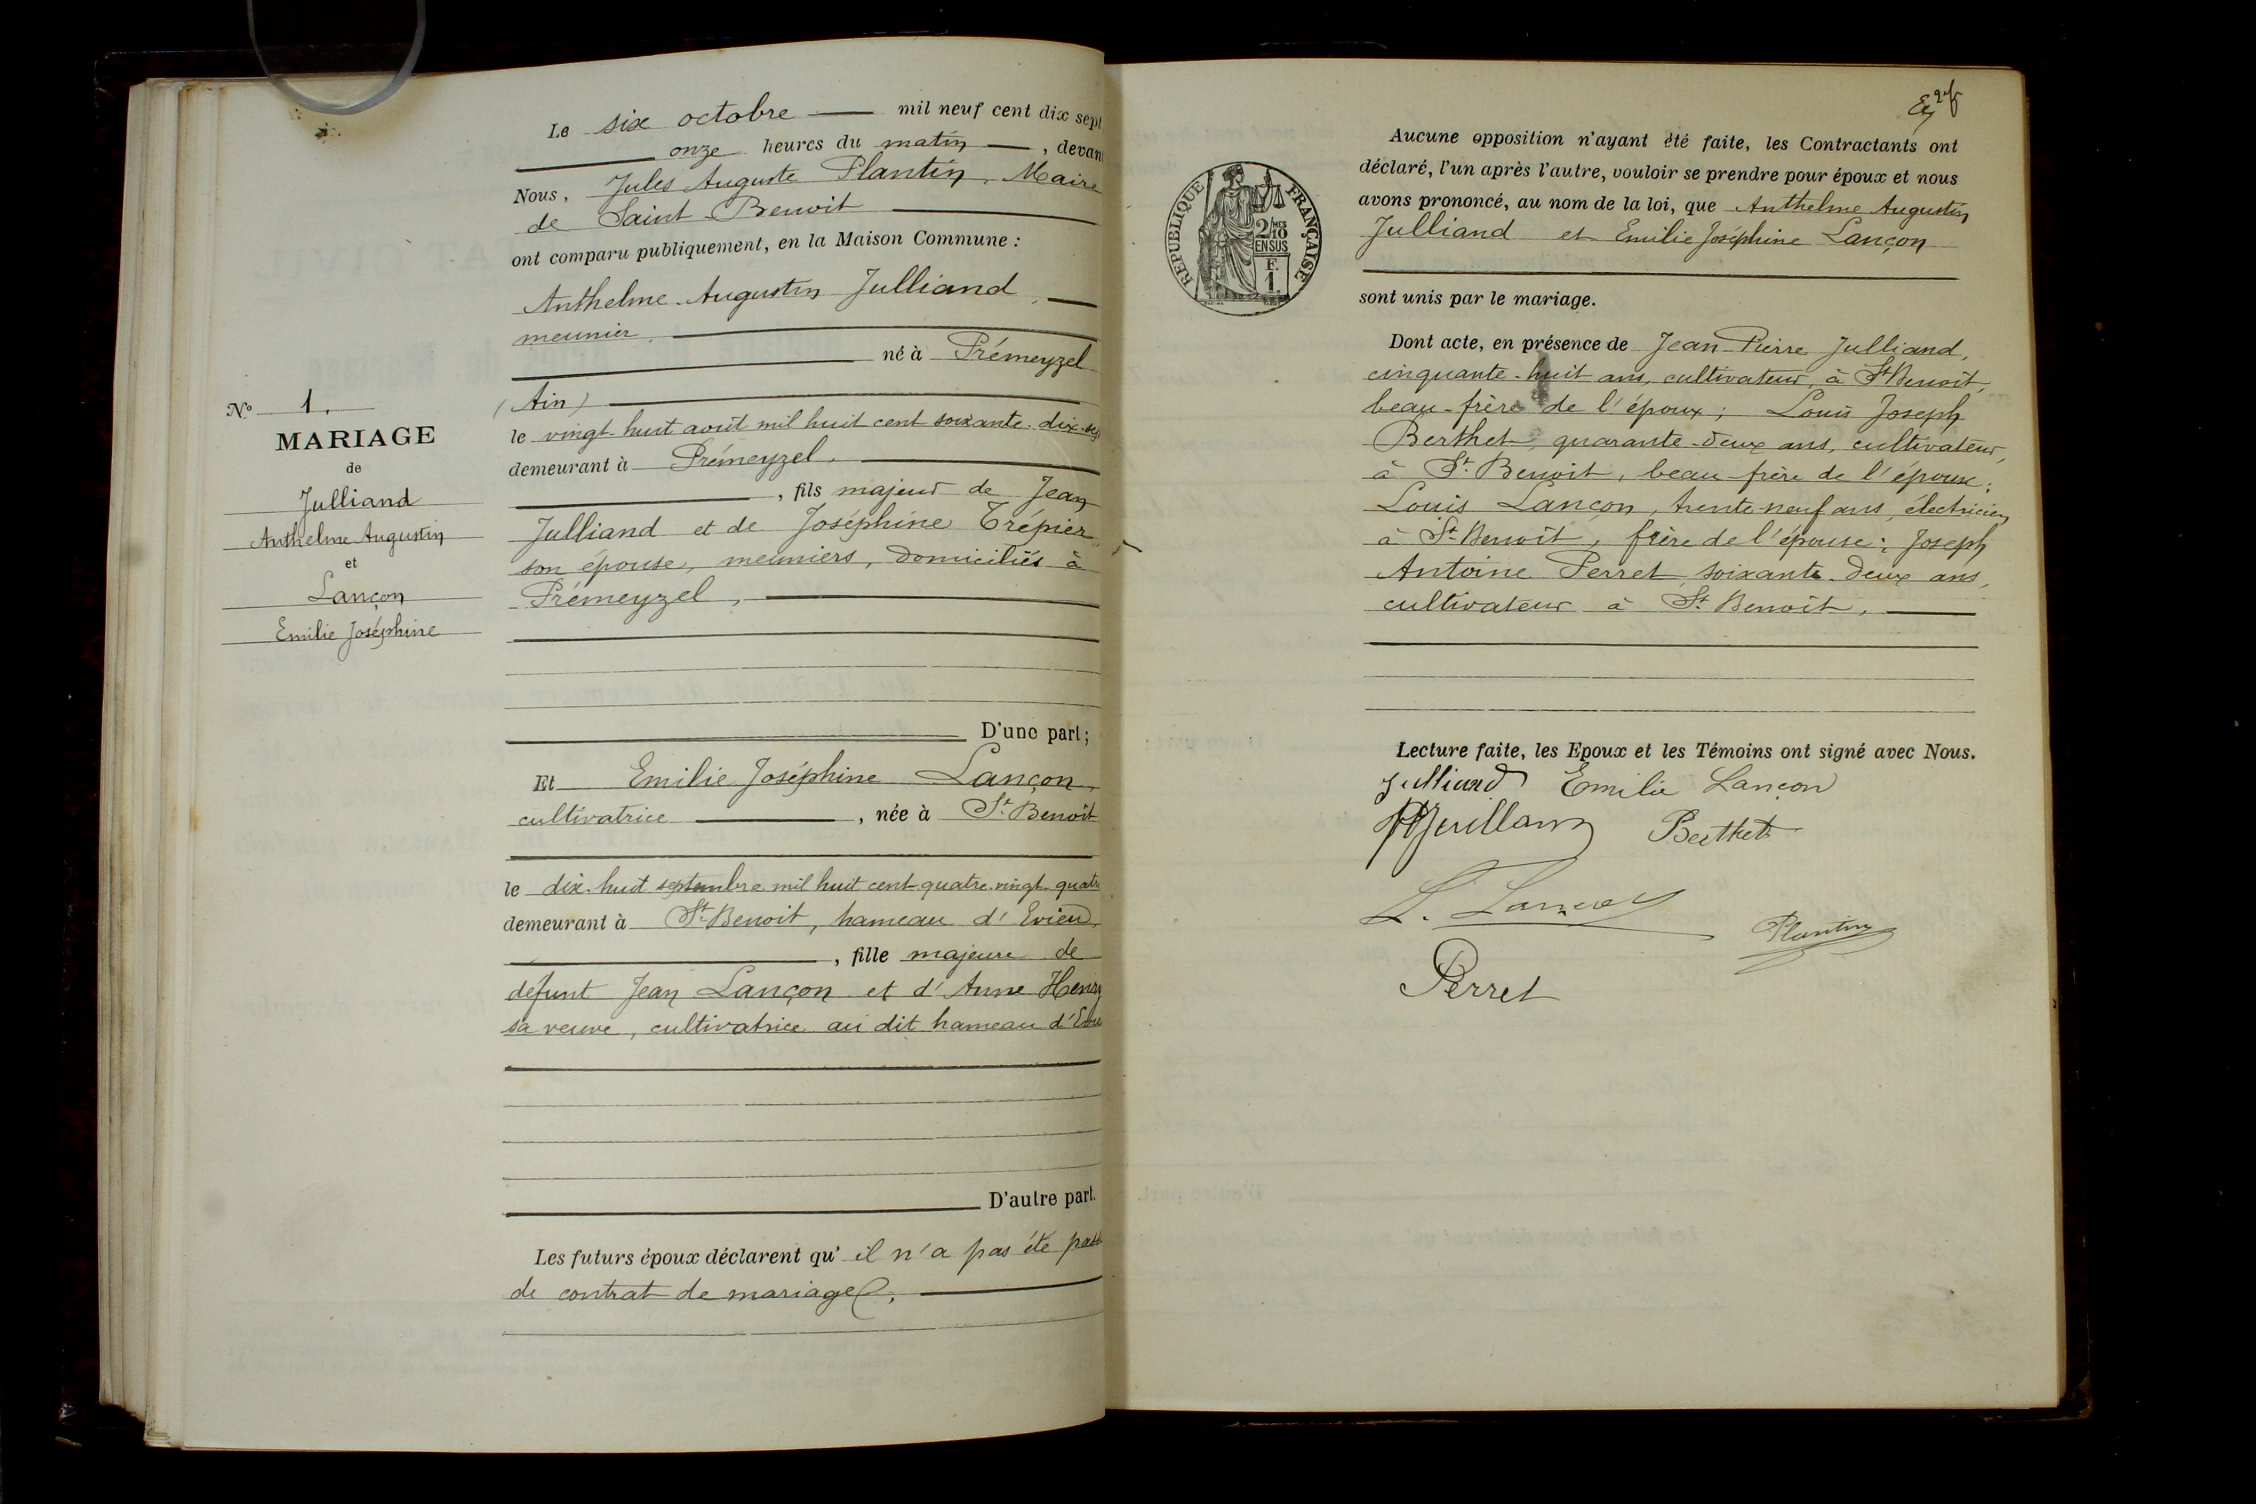 Le six octobre mil neuf cent dix sept
onze heures du matin, devant
Nous, Jules Auguste Plantin, Maire
de Saint Benoit
ont comparu publiquement, en la Maison Commune :
Anthelme Augustin Julliand,
meunier,
né à Prémeyzel
(Ain)
le vingt huit août mil huit cent soixante-dix-sept
demeurant à Prémeyzel,
, fils majeur de Jean
Julliand et de Joséphine Trépier
son épouse, meuniers, domiciliés à
Prémeyzel,
D'une part ;
Nº 1.
MARIAGE
de
Julliand
Anthelme Augustin
et
Lançon
Emilie Joséphine
Et Emilie Joséphine Lançon,
cultivatrice, née à St. Benoît
le dix-huit septembre mil huit cent quatre-vingt-quatre
demeurant à St. Benoit, hameau d'Evieu,
, fille majeure de
défunt Jean Lançon et d'Anne Henry
sa veuve, cultivatrice au dit hameau d'Evieu
D'autre part.
Les futurs époux déclarent qu'il n'a pas été passé
de contrat de mariage.
REPUBLIQUE FRANÇAISE
2/10MES
EN SUS
F.
1.
Aucune opposition n'ayant été faite, les Contractants ont
déclaré, l'un après l'autre, vouloir se prendre pour époux et nous
avons prononcé, au nom de la loi, que Anthelme Augustin
Julliand et Emilie Joséphine Lançon
sont unis par le mariage.
Dont acte, en présence de Jean-Pierre Julliand,
cinquante-huit ans, cultivateur, à St Benoît,
beau-frère de l'époux ; Louis Joseph
Berthet, quarante-deux ans, cultivateur,
à St. Benoit, beau-frère de l'époux ;
Louis Lançon, trente-neuf ans, électricien
à St. Benoît, frère de l'épouse ; Joseph
Antoine Perret, soixante-deux ans,
cultivateur à St. Benoît,
Lecture faite, les Epoux et les Témoins ont signé avec Nous.
Julliand Emilie Lançon
Berthet
L. Lançon
Plantin
Perret